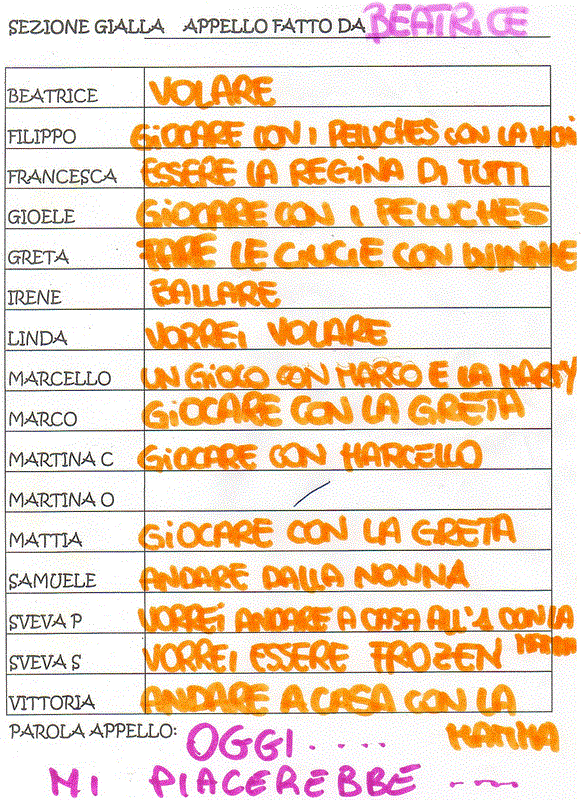 SEZIONE GIALLA APPELLO FATTO DA BEATRICE
BEATRICE VOLARE
FILIPPO GIOCARE CON I PELUCHES CON LA
FRANCESCA ESSERE LA REGINA DI TUTTI
GIOELE GIOCARE CON I PELUCHES
GRETA FARE LE CON
IRENE BALLARE
LINDA VORREI VOLARE
MARCELLO UN GIOCO CON MARCO E LA MARTY
MARCO GIOCARE CON LA GRETA
MARTINA C GIOCARE CON MARCELLO
MARTINA O /
MATTIA GIOCARE CON LA GRETA
SAMUELE ANDARE DALLA NONNA
SVEVA P VORREI ANDARE A CASA ALL'1 CON LA
MAMMA
SVEVA S VORREI ESSERE FROZEN
VITTORIA ANDARE A CASA CON LA
MAMMA
PAROLA APPELLO: OGGI....
MI PIACEREBBE ....